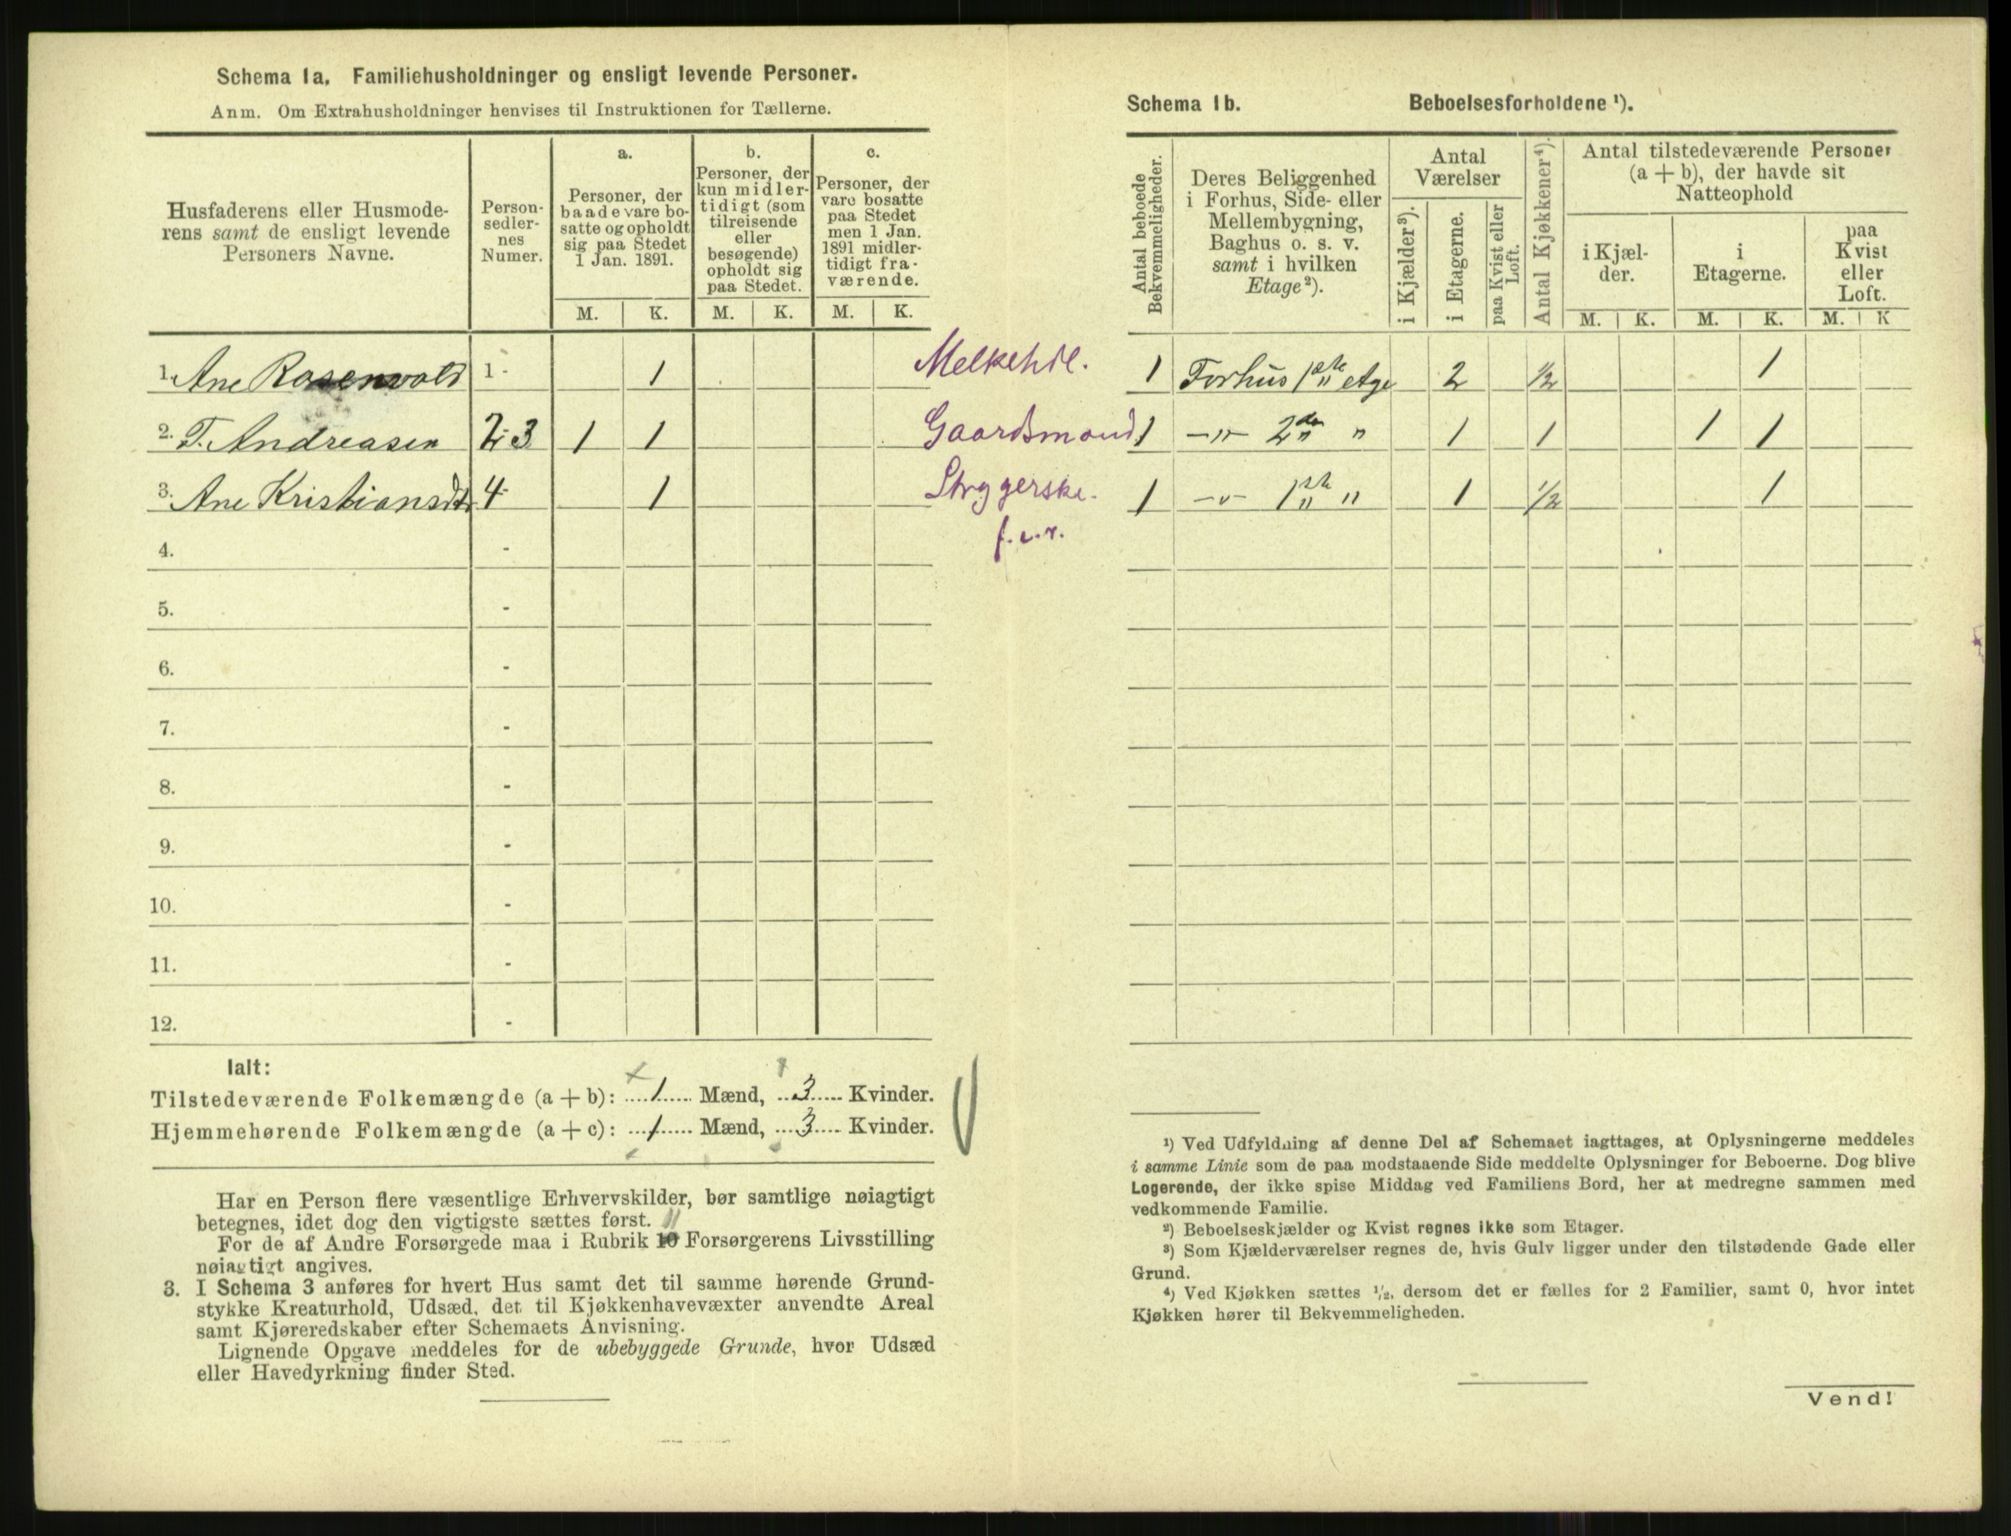 Schema 1a. Familiehusholdninger og ensligt levende Personer.
Anm. Om Extrahusholdninger henvises til Instruktionen for Tællerne.
Husfaderens eller Husmode-
rens samt de ensligt levende
Personers Navne.
Person-
sedler-
nes
Numer.
a.
Personer, der
baade vare bo-
satte og opholdt
sig paa Stedet
1 Jan. 1891.
b.
Personer, der
kun midler-
tidigt (som
tilreisende
eller
besøgende)
opholdt sig
paa Stedet.
c.
Personer, der
vare bosatte
paa Stedet
men 1 Jan.
1891 midler-
tidigt fra-
værende.
M. K. M. K. M. K.
1. Ane Rosenvold 1 - 1 Melkehdl.
2. T. Andreasen 2 - 3 1 1 Gaardsmand
3. Ane Kristiansdtr 4 - 1 Strygerske.
f.e.r.
4. -
5. -
6. -
7. -
8. -
9. -
10. -
11. -
12. -
Ialt:
Tilstedeværende Folkemængde (a + b): 1 Mænd, 3 Kvinder.
Hjemmehørende Folkemængde (a + c): 1 Mænd, 3 Kvinder.
Har en Person flere væsentlige Erhvervskilder, bør samtlige nøiagtigt
betegnes, idet dog den vigtigste sættes først. 11
For de af Andre Forsørgede maa i Rubrik 10 Forsørgerens Livsstilling
nøiagtigt angives.
3. I Schema 3 anføres for hvert Hus samt det til samme hørende Grund-
stykke Kreaturhold, Udsæd, det til Kjøkkenhavevæxter anvendte Areal
samt Kjøreredskaber efter Schemaets Anvisning.
Lignende Opgave meddeles for de ubebyggede Grunde, hvor Udsæd
eller Havedyrkning finder Sted.
Schema 1b. Beboelsesforholdene ¹).
Antal beboede
Bekvemmeligheder.
Deres Beliggenhed
i Forhus, Side- eller
Mellembygning,
Baghus o. s. v.
samt i hvilken
Etage ²).
Antal
Værelser
i Kjælder ³).
i Etagerne.
paa Kvist eller
Loft.
Antal Kjøkkener ⁴).
Antal tilstedeværende Personer
(a + b), der havde sit
Natteophold
i Kjæl-
der.
i
Etagerne.
paa
Kvist
eller
Loft.
M. K. M. K. M. K
1 Forhus 1ste " etge 2 1/2 1
1 -"- 2den " " 1 1 1 1
1 -"- 1ste " " 1 1/2 1
¹) Ved Udfyldning af denne Del af Schemaet iagttages, at Oplysningerne meddeles
i samme Linie som de paa modstaaende Side meddelte Oplysninger for Beboerne. Dog blive
Logerende, der ikke spise Middag ved Familiens Bord, her at medregne sammen med
vedkommende Familie.
²) Beboelseskjælder og Kvist regnes ikke som Etager.
³) Som Kjælderværelser regnes de, hvis Gulv ligger under den tilstødende Gade eller
Grund.
⁴) Ved Kjøkken sættes 1/2, dersom det er fælles for 2 Familier, samt 0, hvor intet
Kjøkken hører til Bekvemmeligheden.
Vend!